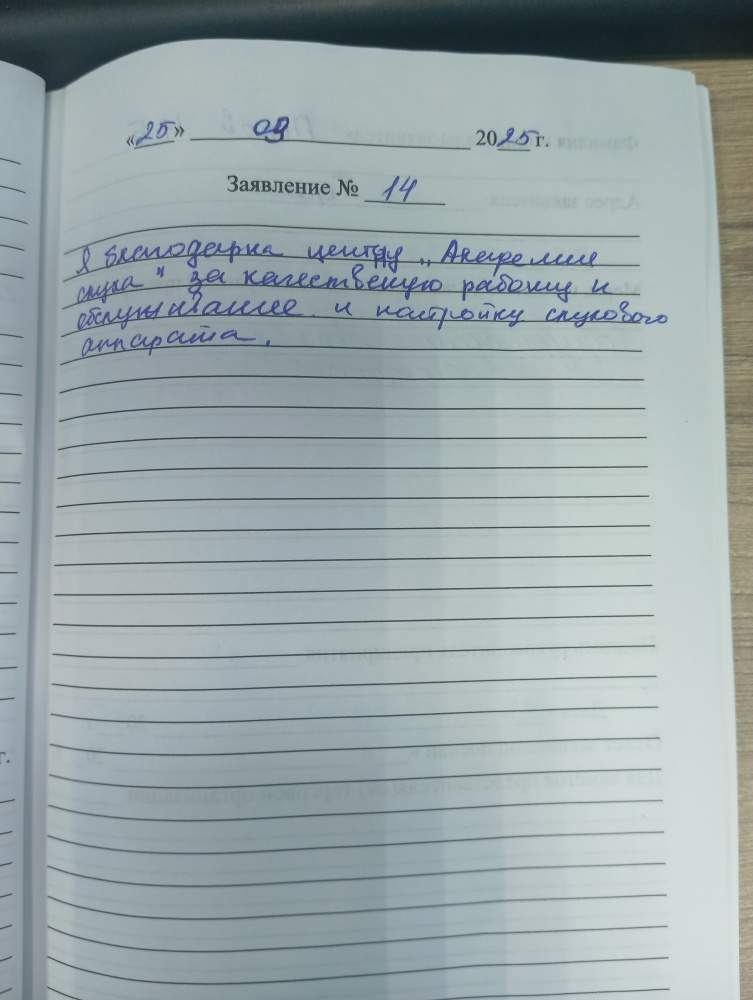 «25» 09 2025 г.
Заявление № 14
Я благодарна центру „Академия
слуха" за качествуную работу и
обслуживание и настройку слухового
аппарата.
г.